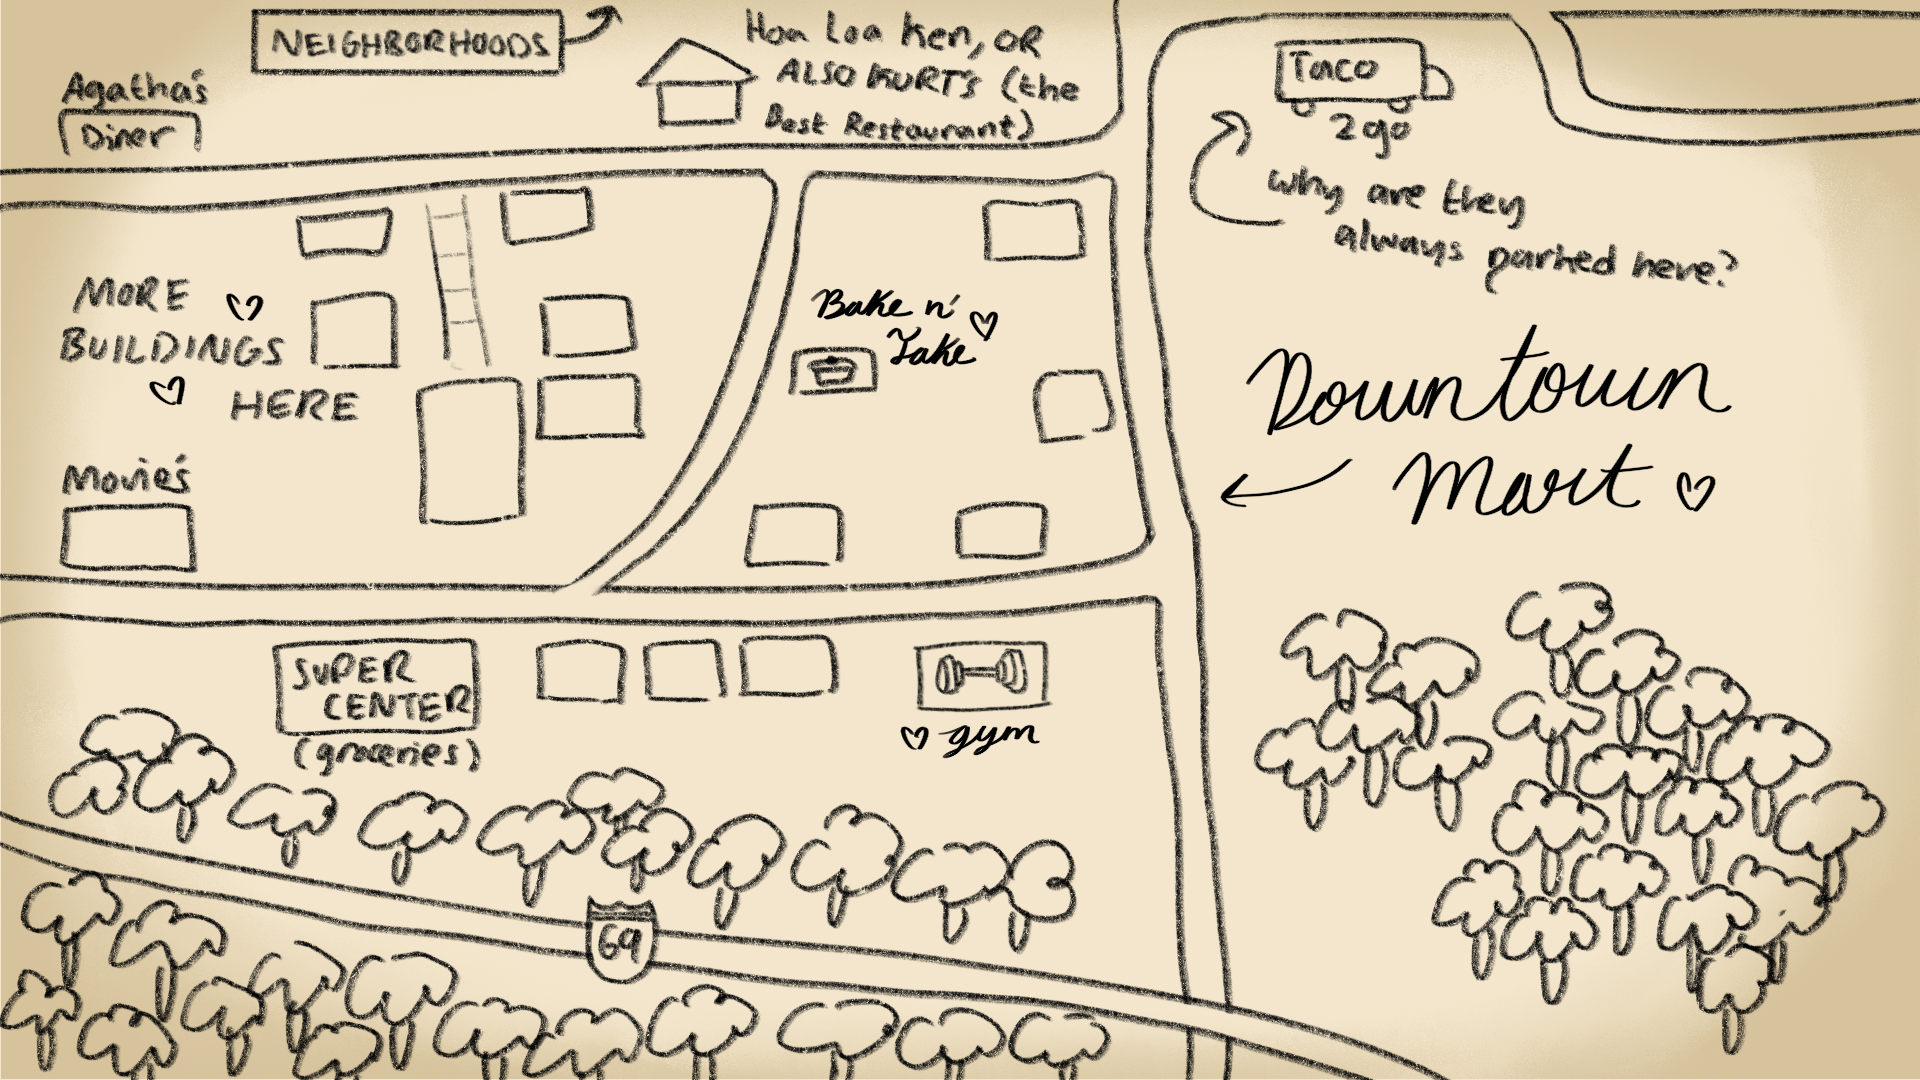 NEIGHBORHOODS
Hoa Loa Ken, OR
ALSO KURT's (the
Best Restaurant)
Agatha's
Diner
Taco
2go
why are they
always parked here?
MORE
BUILDINGS
HERE
Bake n'
Take
Downtown
Mart
Movie's
SUPER
CENTER
(groceries)
gym
69